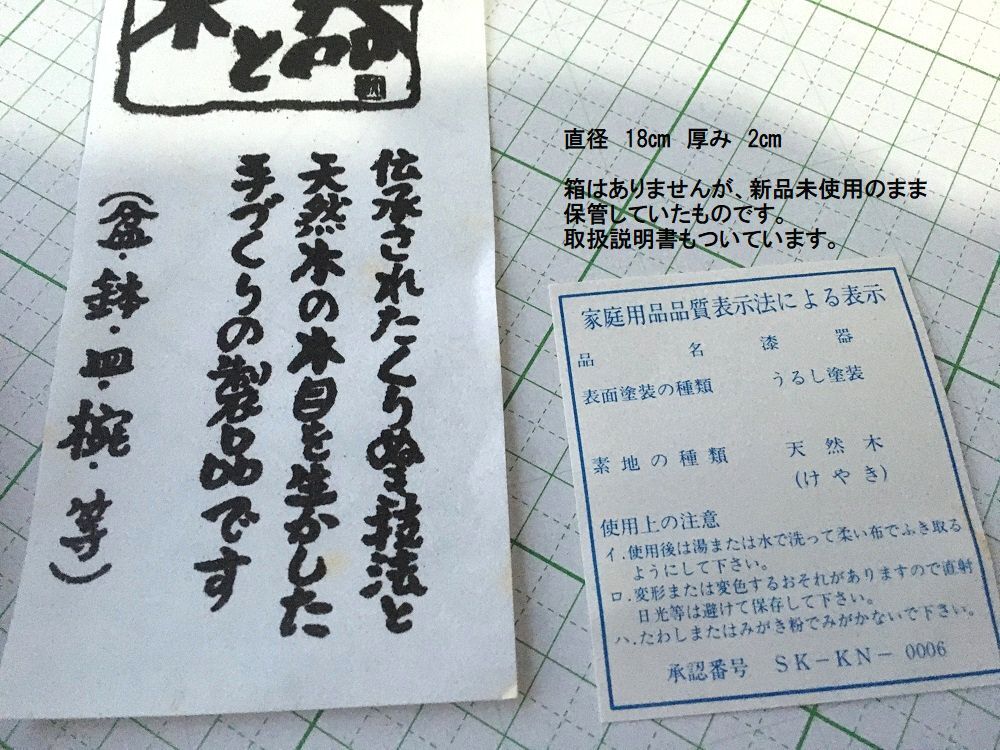 木と器
伝承されたくりぬき技法と
天然木の木目を生かした
手づくりの製品です
(盆・鉢・皿・椀・等)
直径 18cm 厚み 2cm
箱はありませんが、新品未使用のまま
保管していたものです。
取扱説明書もついています。
家庭用品品質表示法による表示
品名 漆器
表面塗装の種類 うるし塗装
素地の種類 天然木
(けやき)
使用上の注意
イ.使用後は湯または水で洗って柔い布でふき取る
ようにして下さい。
ロ.変形または変色するおそれがありますので直射
日光等は避けて保存して下さい。
ハ.たわしまたはみがき粉でみがかないで下さい。
承認番号 SK-KN-0006